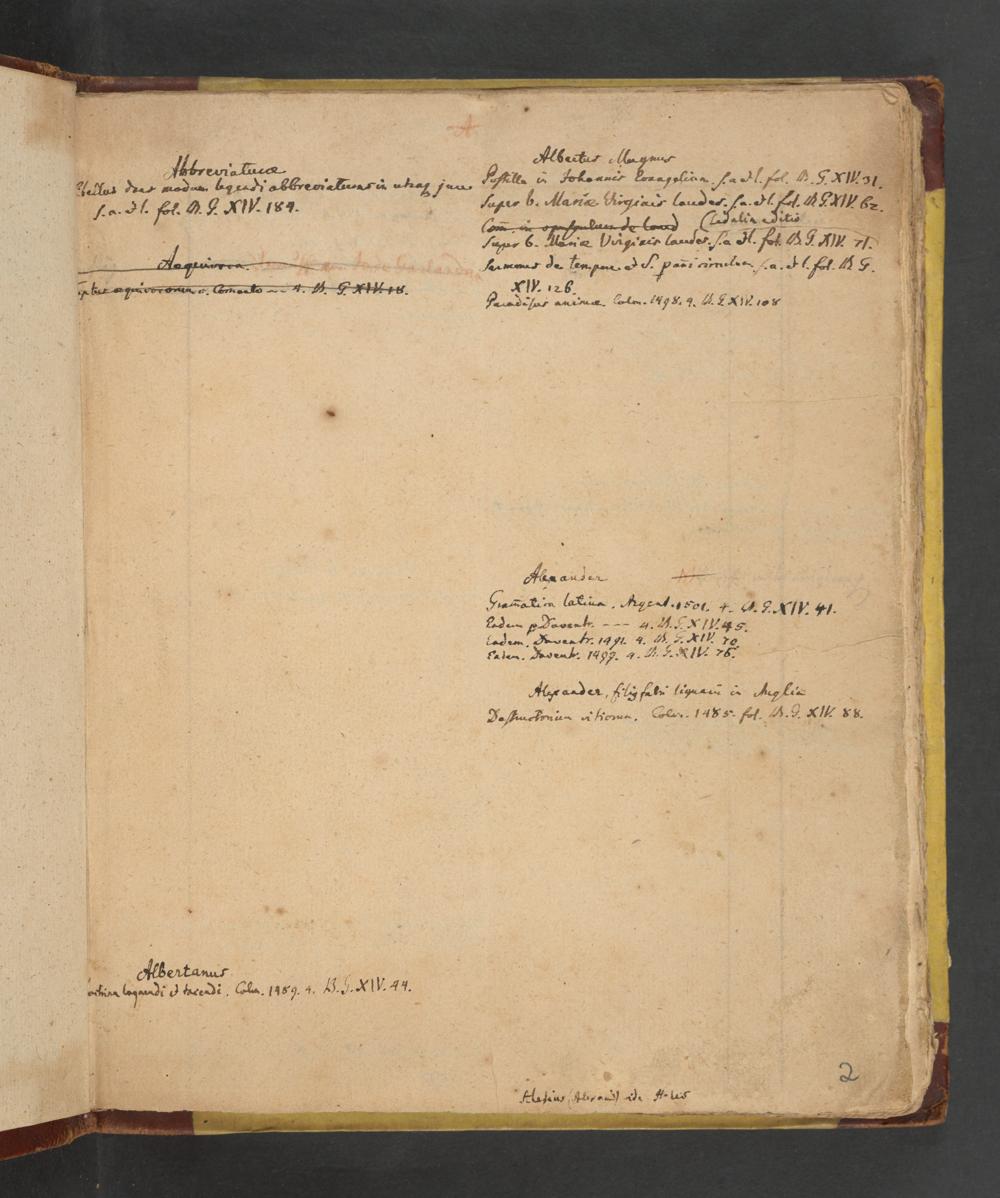 A
Abbreviaturae
dans modum legendi abbreviaturas in utroq jure
s. a. et l. fol. B. G. XIV. 184.
Aequivoca
aequivocorum c. Comento --- 4. B. G. XIV. 18.
Albertanus
loquendi et tacendi. Colon. 1489. 4. B. G. XIV. 44.
Albertus Magnus
Postilla in Johannis Evangelium. s. a. et l. fol. B. G. XIV. 31.
Super b. Mariae Virginis laudes. s. a. et l. fol. B. G. XIV. 62.
Com. in
Super b. Mariae Virginis laudes. s. a. et l. fol. B. G. XIV. 71.
Sermones de tempore et S. s. a. et l. fol. B. G.
XIV. 126.
Paradisus animae. Colon. 1498. 4. B. G. XIV. 108
Alexander
Gramatica latina. Argent. 1501. 4. B. G. XIV. 41.
Eadem Daventr. --- 4. B. G. XIV. 45.
Eadem. Daventr. 1491. 4. B. G. XIV. 70.
Eadem. Daventr. 1499. 4. B. G. XIV. 76.
Alexander, fabri lignarii in Anglia
Destructorium vitiorum. Colon. 1485. fol. B. G. XIV. 88.
Alesius vide Hales
2